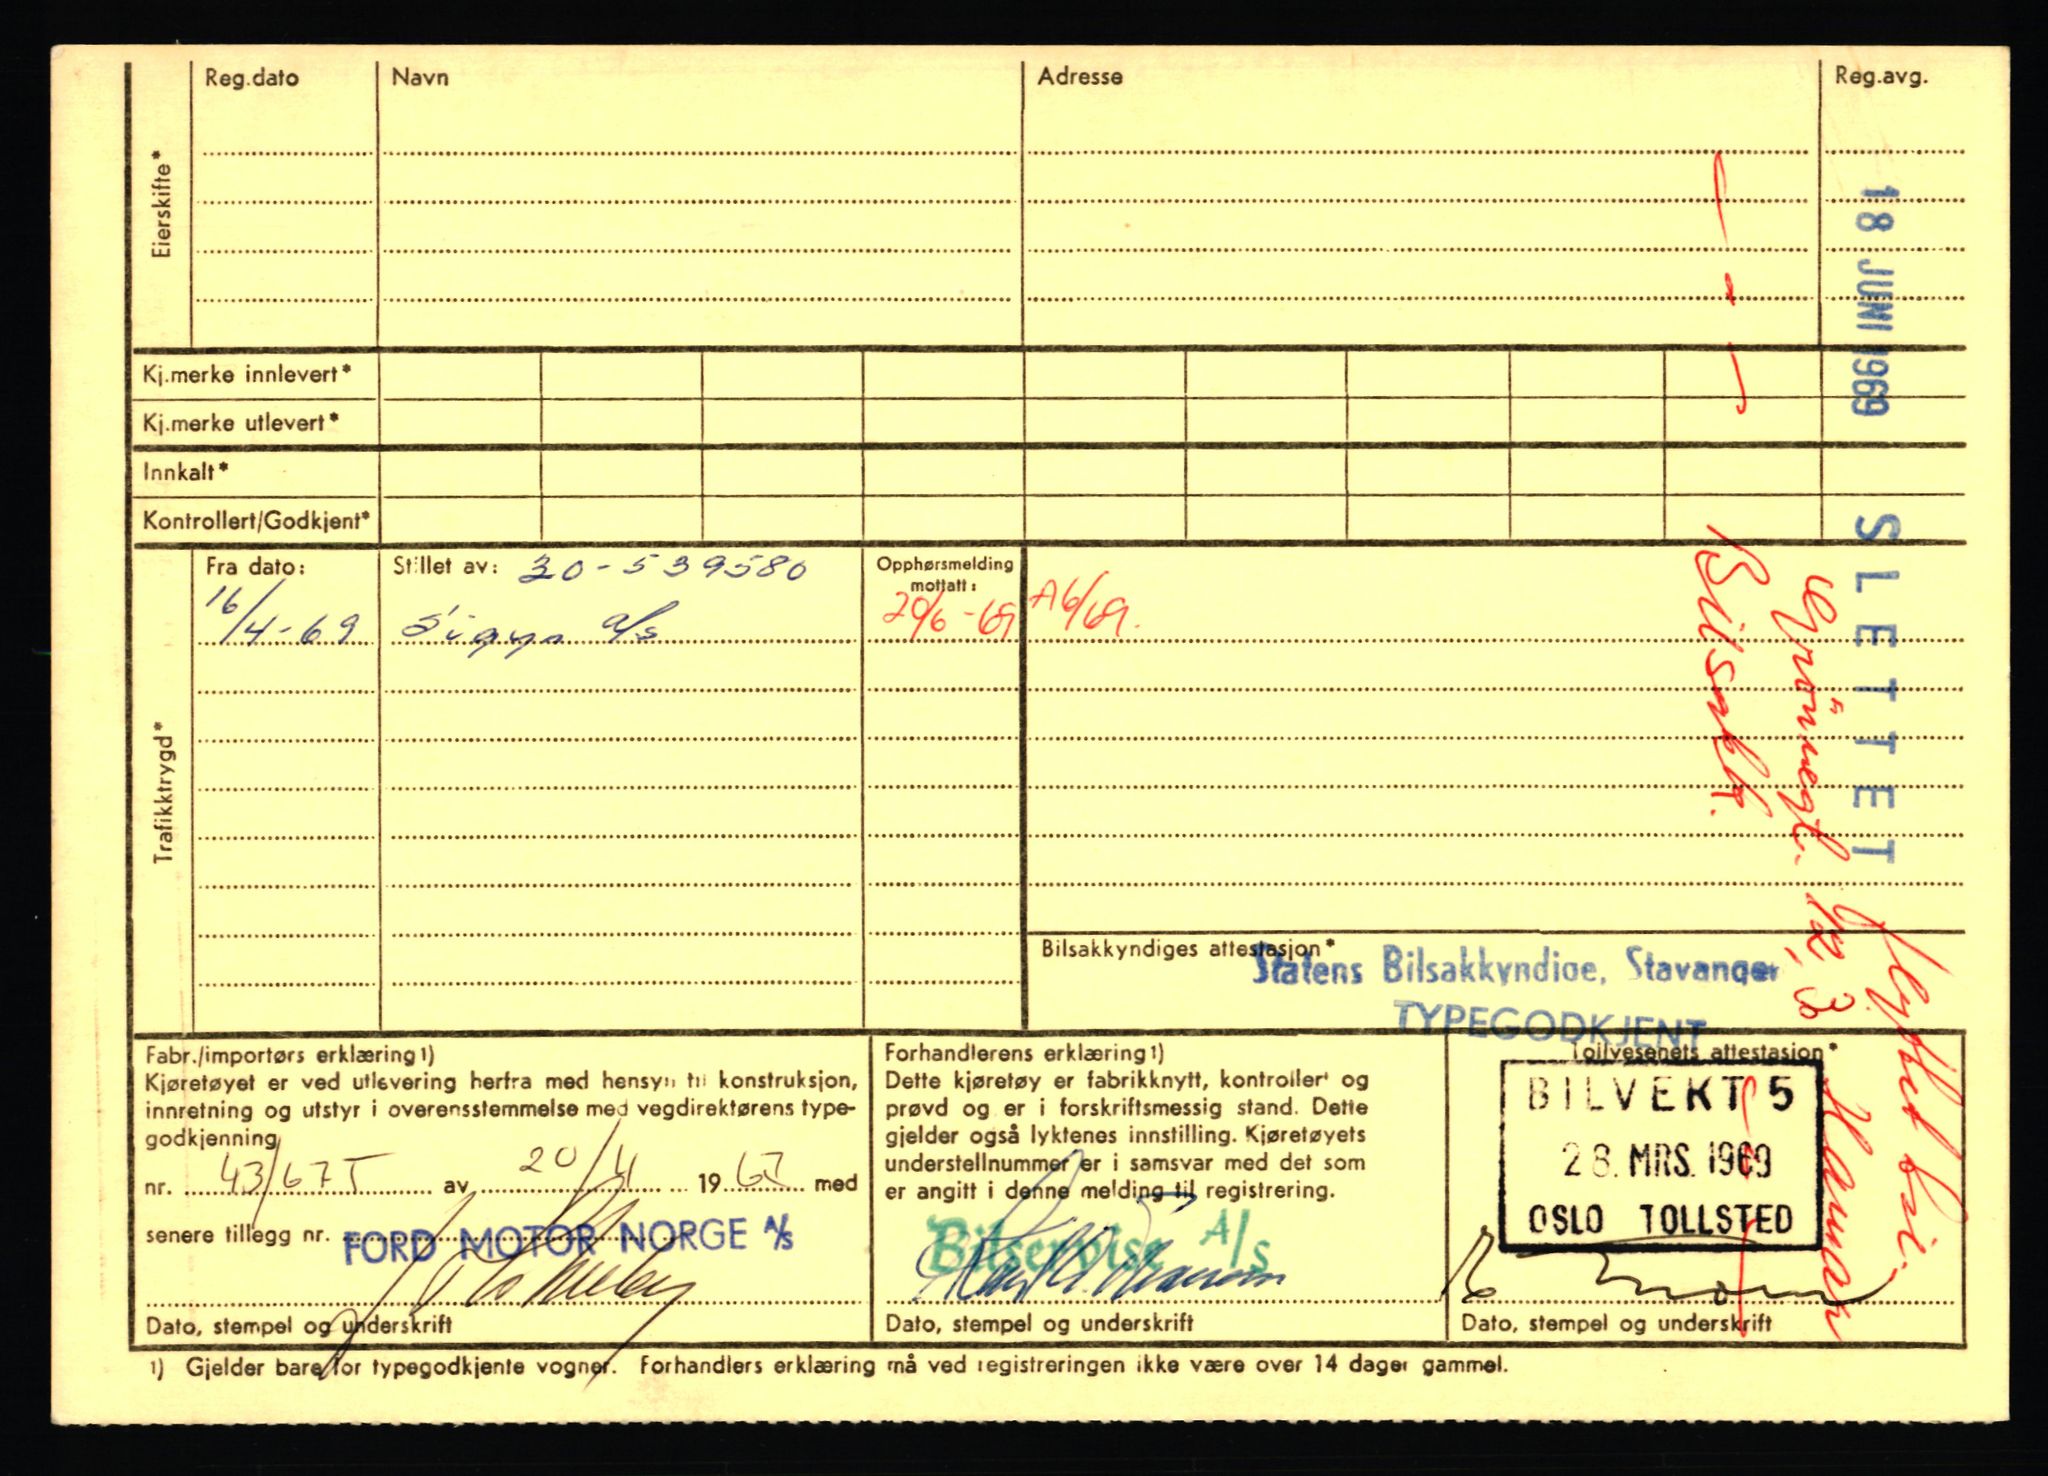 Reg.dato Navn Adresse Reg.avg.
Eierskifte*
18 JUNI 1969 SLETTET
Kj.merke innlevert*
Kj.merke utlevert*
Innkalt*
Kontrollert/Godkjent*
Trafikktrygd*
Fra dato: Stillet av: 30-539580 Opphørsmelding
mottatt:
16/4-69 Sigyn a/s 20/6-69 A6/69.
Flyttet til
Grönnegt. 42, 3 Hamar
Bilsakk.
Bilsakkyndiges attestasjon*
Statens Bilsakkyndige, Stavanger
TYPEGODKJENT
Fabr./importørs erklæring1)
Kjøretøyet er ved utlevering herfra med hensyn til konstruksjon,
innretning og utstyr i overensstemmelse med vegdirektørens type-
godkjenning
nr. 43/67T av 20/4 1967 med
senere tillegg nr.
FORD MOTOR NORGE A/S
Dato, stempel og underskrift
Forhandlerens erklæring1)
Dette kjøretøy er fabrikknytt, kontrollert og
prøvd og er i forskriftsmessig stand. Dette
gjelder også lyktenes innstilling. Kjøretøyets
understellnummer er i samsvar med det som
er angitt i denne melding til registrering.
Bilservice A/S
Dato, stempel og underskrift
Tollvesenets attestasjon*
BILVEKT 5
28. MRS. 1969
OSLO TOLLSTED
Dato, stempel og underskrift
1) Gjelder bare for typegodkjente vogner. Forhandlers erklæring må ved registreringen ikke være over 14 dager gammel.